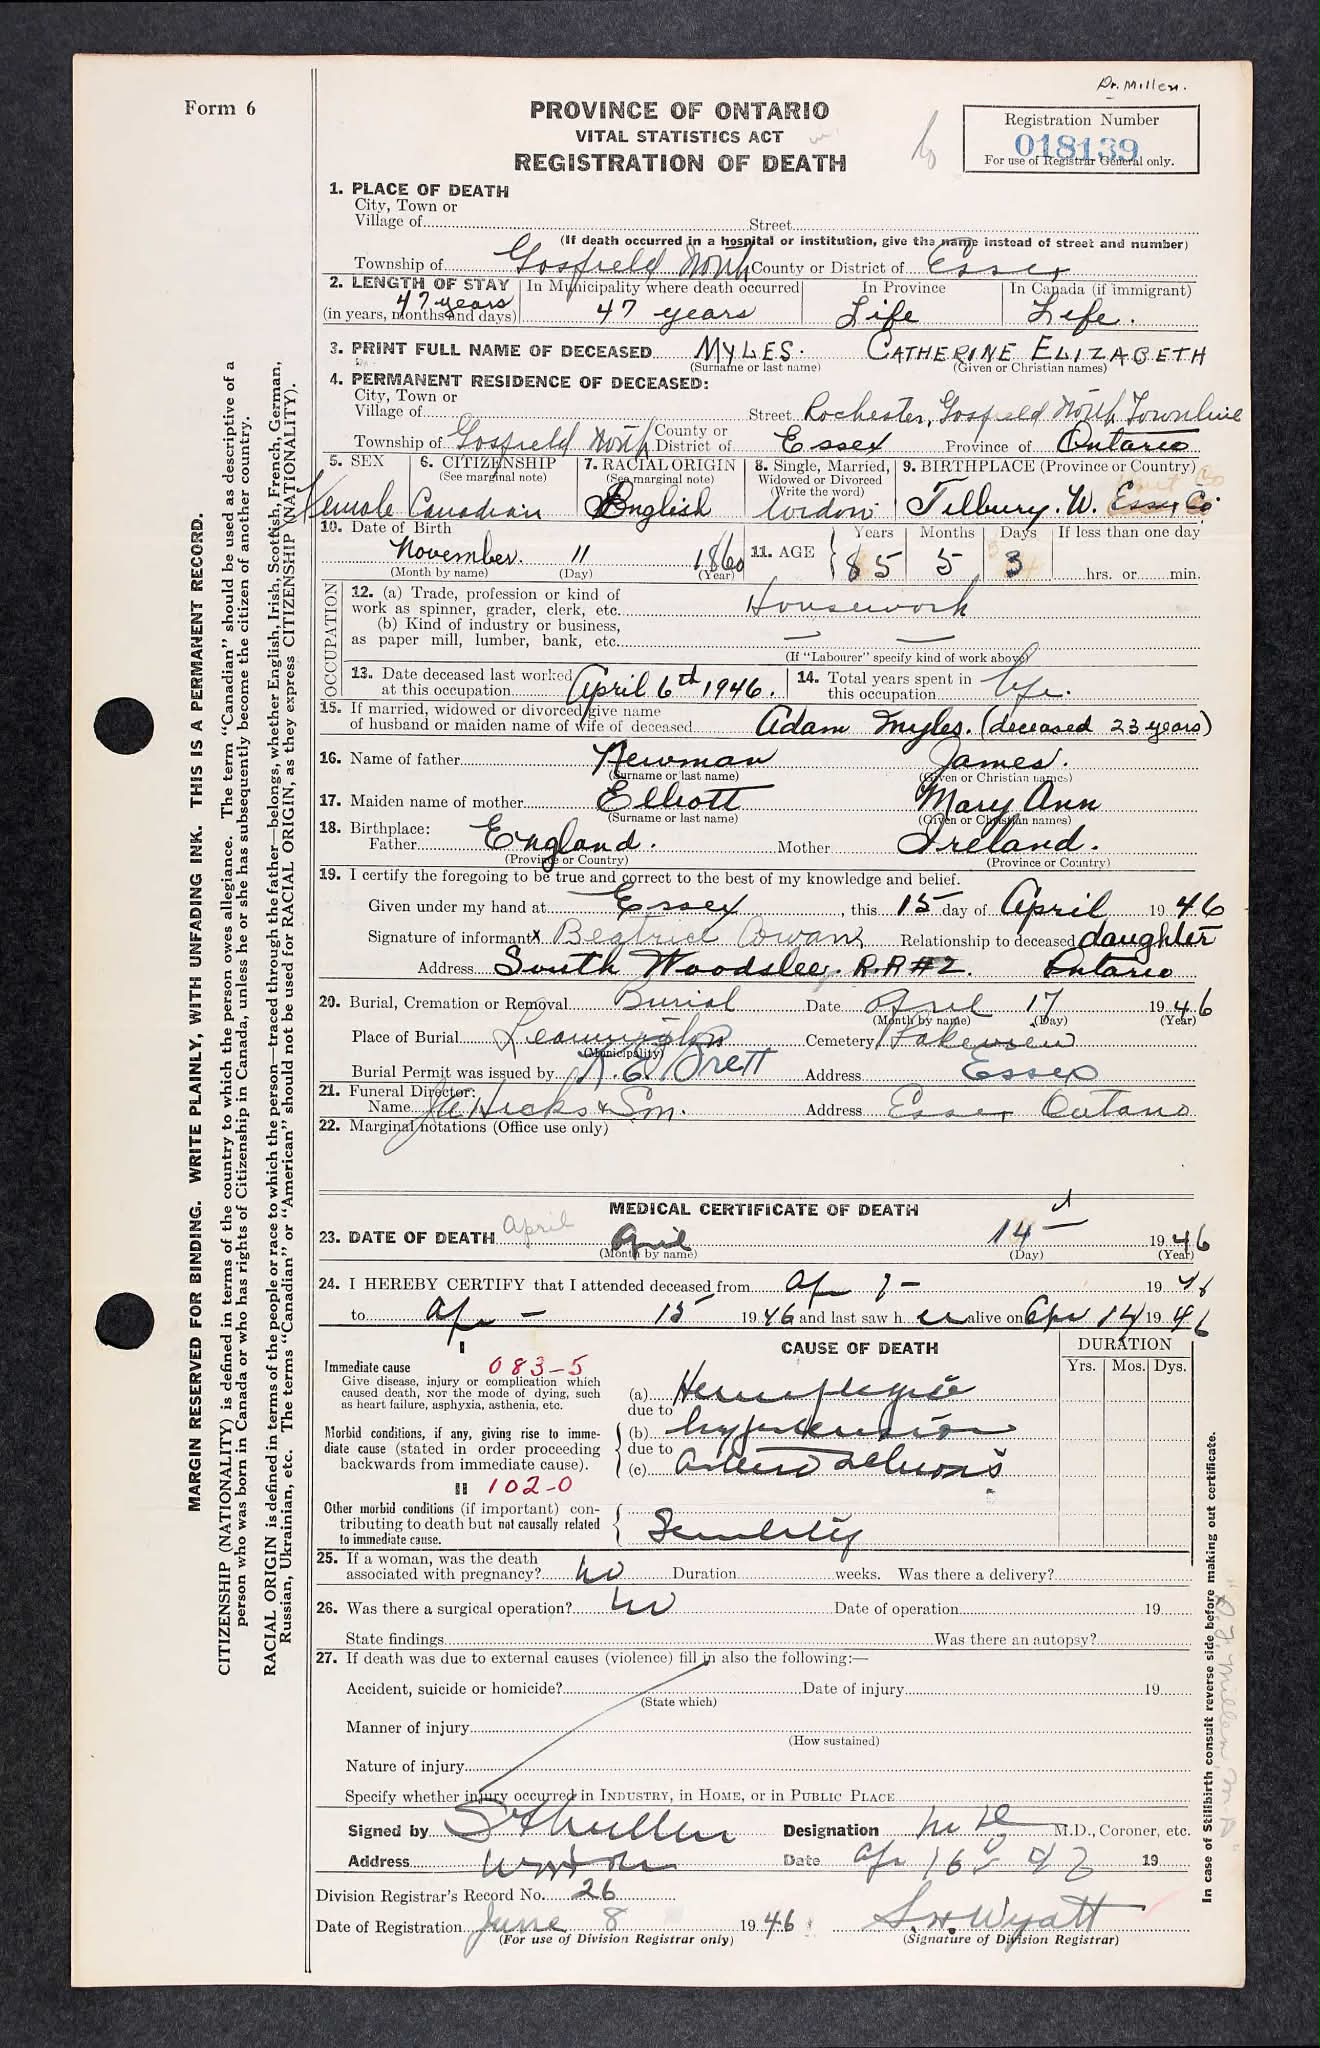 Dr. Millen.
Form 6
PROVINCE OF ONTARIO
VITAL STATISTICS ACT
REGISTRATION OF DEATH
Registration Number
018139
For use of Registrar General only.
1. PLACE OF DEATH
City, Town or
Village of Street
(If death occurred in a hospital or institution, give the name instead of street and number)
Township of Gosfield North County or District of Essex
2. LENGTH OF STAY In Municipality where death occurred In Province In Canada (if immigrant)
47 years
(in years, months and days) 47 years Life Life.
3. PRINT FULL NAME OF DECEASED MYLES. CATHERINE ELIZABETH
(Surname or last name) (Given or Christian names)
4. PERMANENT RESIDENCE OF DECEASED:
City, Town or
Village of Street Rochester, Gosfield North Townline
Township of Gosfield North County or District of Essex Province of Ontario
5. SEX 6. CITIZENSHIP (See marginal note) 7. RACIAL ORIGIN (See marginal note) 8. Single, Married, Widowed or Divorced (Write the word) 9. BIRTHPLACE (Province or Country)
Female Canadian English widow Tilbury. W. Essex Co.
10. Date of Birth 11. AGE Years Months Days If less than one day
November. 11 1860 85 5 3
(Month by name) (Day) (Year) hrs. or min.
OCCUPATION
12. (a) Trade, profession or kind of
work as spinner, grader, clerk, etc. Housework
(b) Kind of industry or business,
as paper mill, lumber, bank, etc.
(If "Labourer" specify kind of work above)
13. Date deceased last worked at this occupation April 6th 1946. 14. Total years spent in this occupation life.
15. If married, widowed or divorced give name
of husband or maiden name of wife of deceased Adam Myles. (deceased 23 years)
16. Name of father Newman James.
(Surname or last name) (Given or Christian names)
17. Maiden name of mother Elliott Mary Ann
(Surname or last name) (Given or Christian names)
18. Birthplace:
Father England. Mother Ireland.
(Province or Country) (Province or Country)
19. I certify the foregoing to be true and correct to the best of my knowledge and belief.
Given under my hand at Essex, this 15 day of April 1946
Signature of informant x Beatrice Cowan Relationship to deceased daughter
Address South Woodslee, R.R #2. Ontario
20. Burial, Cremation or Removal Burial Date April 17 1946
(Month by name) (Day) (Year)
Place of Burial Leamington Cemetery Lakeview
(Municipality)
Burial Permit was issued by K. E. Brett Address Essex
21. Funeral Director:
Name Hicks & Son. Address Essex Ontario
22. Marginal notations (Office use only)
MEDICAL CERTIFICATE OF DEATH
23. DATE OF DEATH April April 14 1946
(Month by name) (Day) (Year)
24. I HEREBY CERTIFY that I attended deceased from Apr 7 - 1946
to Apr - 15 1946 and last saw h er alive on Apr 14 1946
I CAUSE OF DEATH DURATION
Yrs. Mos. Dys.
Immediate cause 083-5
Give disease, injury or complication which
caused death, NOT the mode of dying, such
as heart failure, asphyxia, asthenia, etc.
(a) Hemiplegia
due to
Morbid conditions, if any, giving rise to imme-
diate cause (stated in order proceeding
backwards from immediate cause).
(b) hypertension
due to
(c) arterio sclerosis
II 102-0
Other morbid conditions (if important) con-
tributing to death but not causally related
to immediate cause.
Senility
25. If a woman, was the death
associated with pregnancy? no Duration weeks. Was there a delivery?
26. Was there a surgical operation? no Date of operation 19
State findings Was there an autopsy?
27. If death was due to external causes (violence) fill in also the following:—
Accident, suicide or homicide? Date of injury 19
(State which)
Manner of injury
(How sustained)
Nature of injury
Specify whether injury occurred in INDUSTRY, in HOME, or in PUBLIC PLACE
Signed by Millen Designation M D M.D., Coroner, etc.
Address Date Apr 16 46 19
Division Registrar's Record No. 26
Date of Registration June 8 1946 S. H. Wyatt
(For use of Division Registrar only) (Signature of Division Registrar)
MARGIN RESERVED FOR BINDING. WRITE PLAINLY, WITH UNFADING INK. THIS IS A PERMANENT RECORD.
CITIZENSHIP (NATIONALITY) is defined in terms of the country to which the person owes allegiance. The term "Canadian" should be used as descriptive of a
person who was born in Canada or who has rights of Citizenship in Canada, unless he or she has subsequently become the citizen of another country.
RACIAL ORIGIN is defined in terms of the people or race to which the person—traced through the father—belongs, whether English, Irish, Scottish, French, German,
Russian, Ukrainian, etc. The terms "Canadian" or "American" should not be used for RACIAL ORIGIN, as they express CITIZENSHIP (NATIONALITY).
In case of Stillbirth consult reverse side before making out certificate.